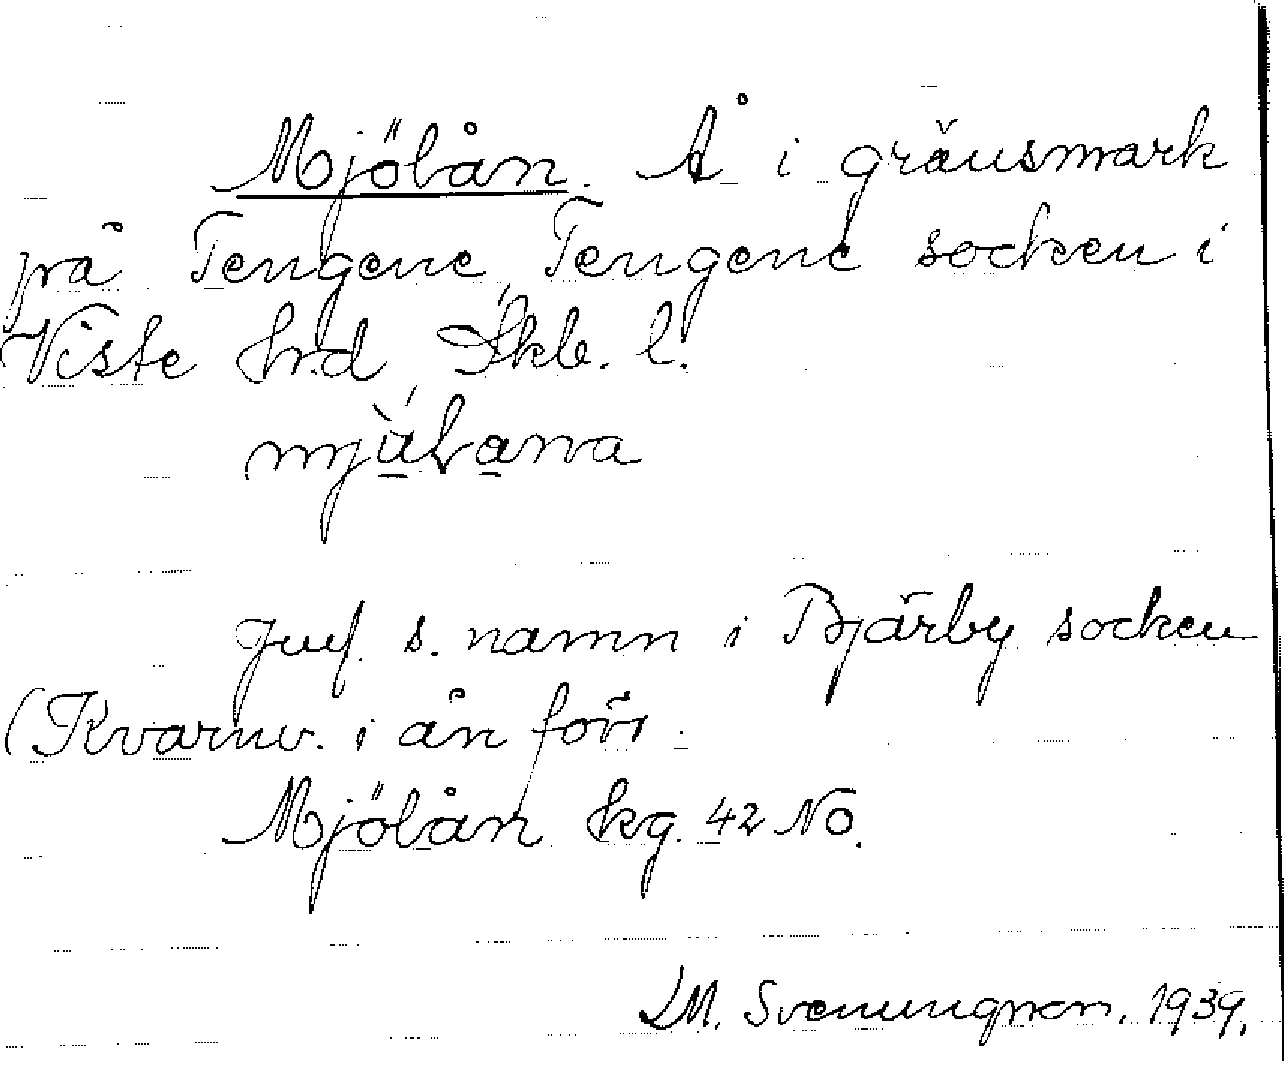 Mjölån. Å i gränsmark
på Tengene, Tengene socken i
Viste hrd, Skb. l.
Jmf. s. namn i Bjärby socken
(Kvarnv. i ån förr.
Mjölån kg. 42 NO.
LM. Svenungsson. 1939.